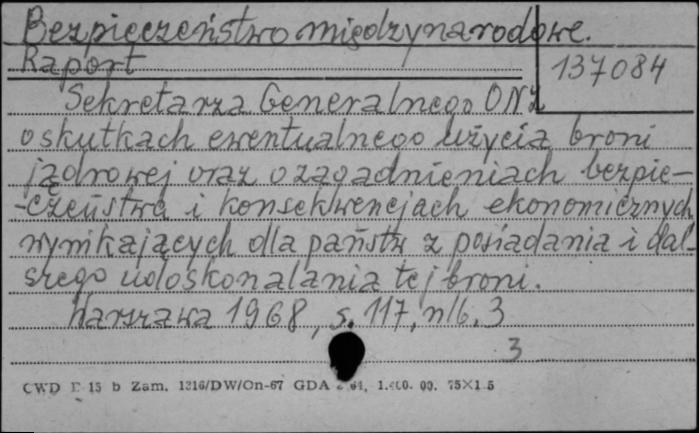 Bezpieczeństwo międzynarodowe.
Raport
137084
Sekretarza Generalnego ONZ
o skutkach ewentualnego użycia broni
jądrowej oraz o zagadnieniach bezpie-
-czeństwa i konsekwencjach ekonomicznych
wynikających dla państw z posiadania i dal
szego udoskonalania tej broni.
Warszawa 1968, s. 117, nlb. 3
3
CWD E 15 b Zam. 1216/DW/On-67 GDA 64, 00. 75×1.5